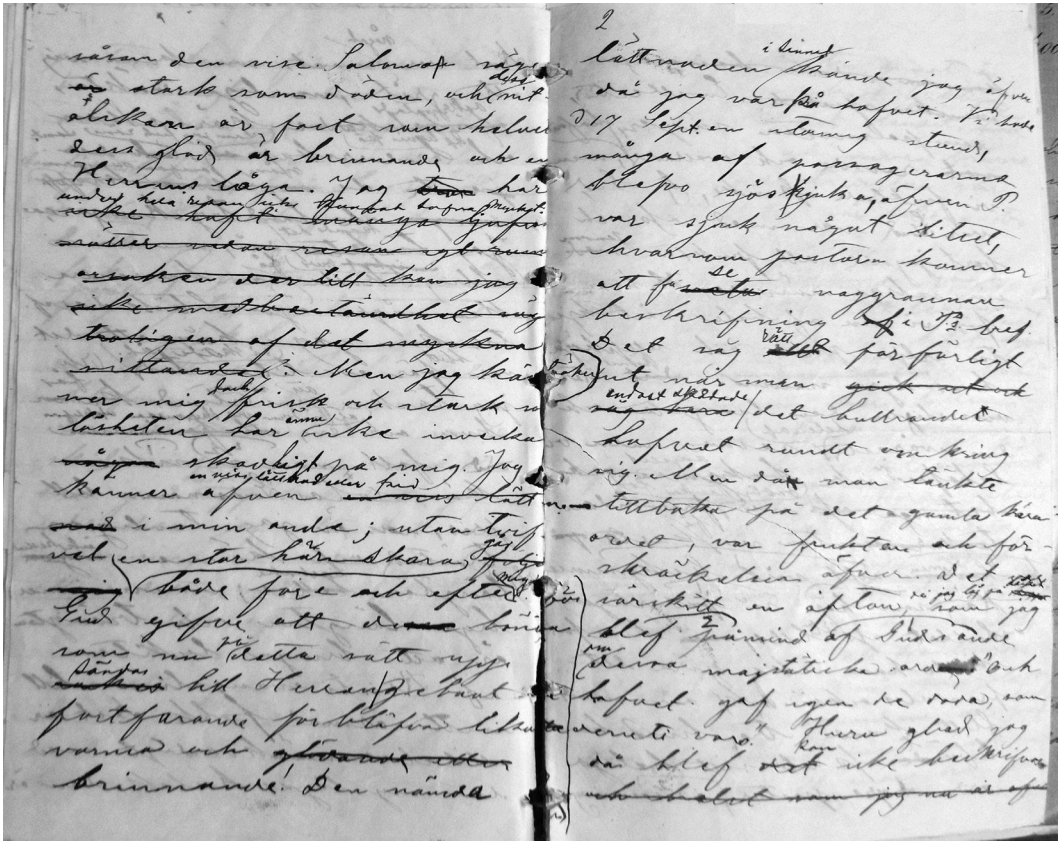 såsom den vise Salomo säg
är stark som döden, och dess nit-
älskan är fast som helve
dess glöd är brinnande och en
Herrans låga. Jag tror har
under hela resan icke
icke haft många
nätter sedan resan
orsaken der till kan jag
icke med bestämdhet säg
troligen af det myckna
sittandet. Men jag kän
ner mig dock frisk och stark
lösheten har ännu icke inverka
någo skadligt på mig. Jag
en viss lättnad eller frid
känner äfven lätt
nad i min anda; utan tvif
vel en stor här skara följ
mig både före och efter
Gud gifve att dessa böner
som nu på detta sätt upp
sändas till Herran
fortfarande förblifva lika
varma och glödande eller
brinnande! Den nämda
2
lättnaden i sinnet kände jag äfven
då jag var på hafvet. Vi hade
d 17 Sept. en stormig stund,
många af passagerarna
blefvo sjösjuka, äfven P.
var sjuk något litet,
hvarom pastorn kommer
att få se noggrannare
beskrifning i bref
Det såg rätt förfärligt
ut när man gick ut och
endast skådade
såg bara det bullrande
hafvet rundt omkring
sig. Men då man tänkte
tillbaka på det gamla kära
ordet, var fruktan och för-
skräckelsen öfver. Det
särskilt en afton, som jag
blef påmind af Guds ande
om dessa majestätiska ord "och
hafvet gaf igen de döda, som
deruti voro." Huru glad jag
då blef kan icke beskrifva
och helst som jag nu är